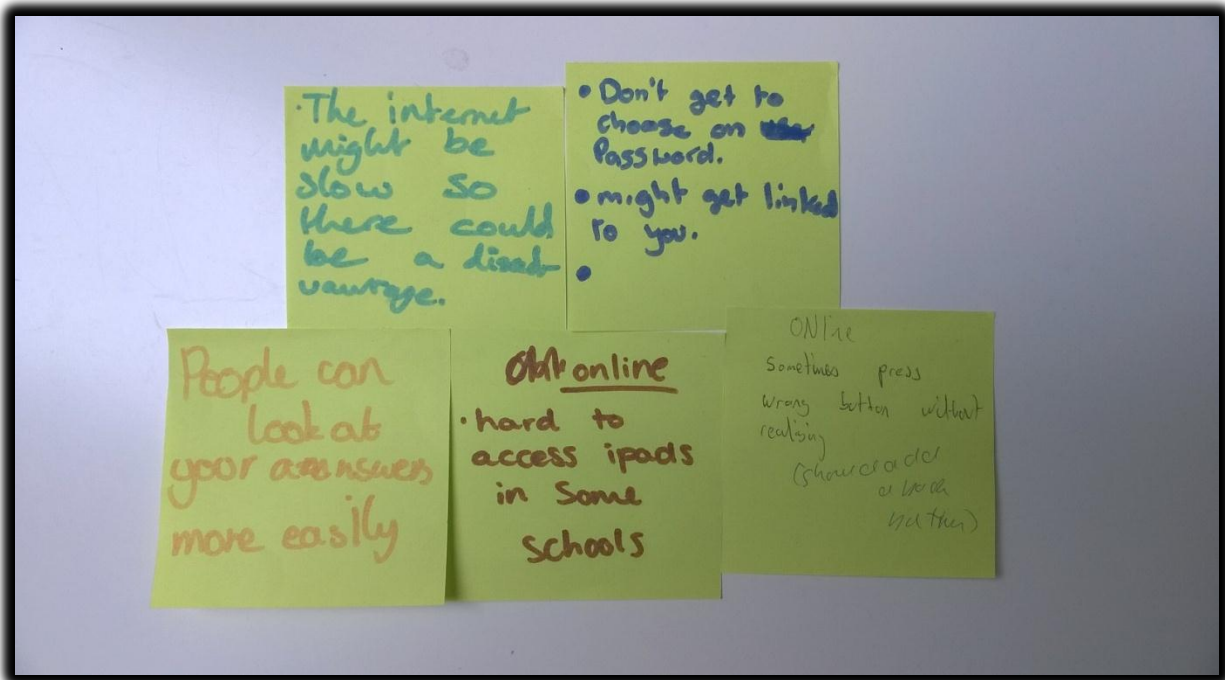 · The internet
might be
slow so
there could
be a disad
vantage.
• Don't get to
choose on
Password.
• might get linked
to you.
•
People can
look at
your answers
more easily
online
· hard to
access ipads
in Some
Schools
ONline
Sometimes press
wrong button without
realising
a back